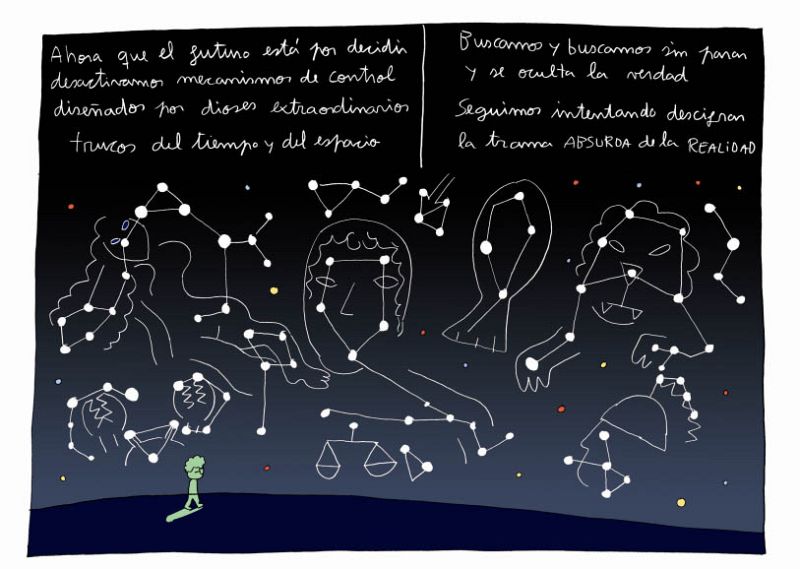 Ahora que el futuro está por decidir
desactivamos mecanismos de control
diseñados por dioses extraordinarios
trucos del tiempo y del espacio
Buscamos y buscamos sin parar
y se oculta la verdad
Seguimos intentando descifrar
la trama ABSURDA de la REALIDAD